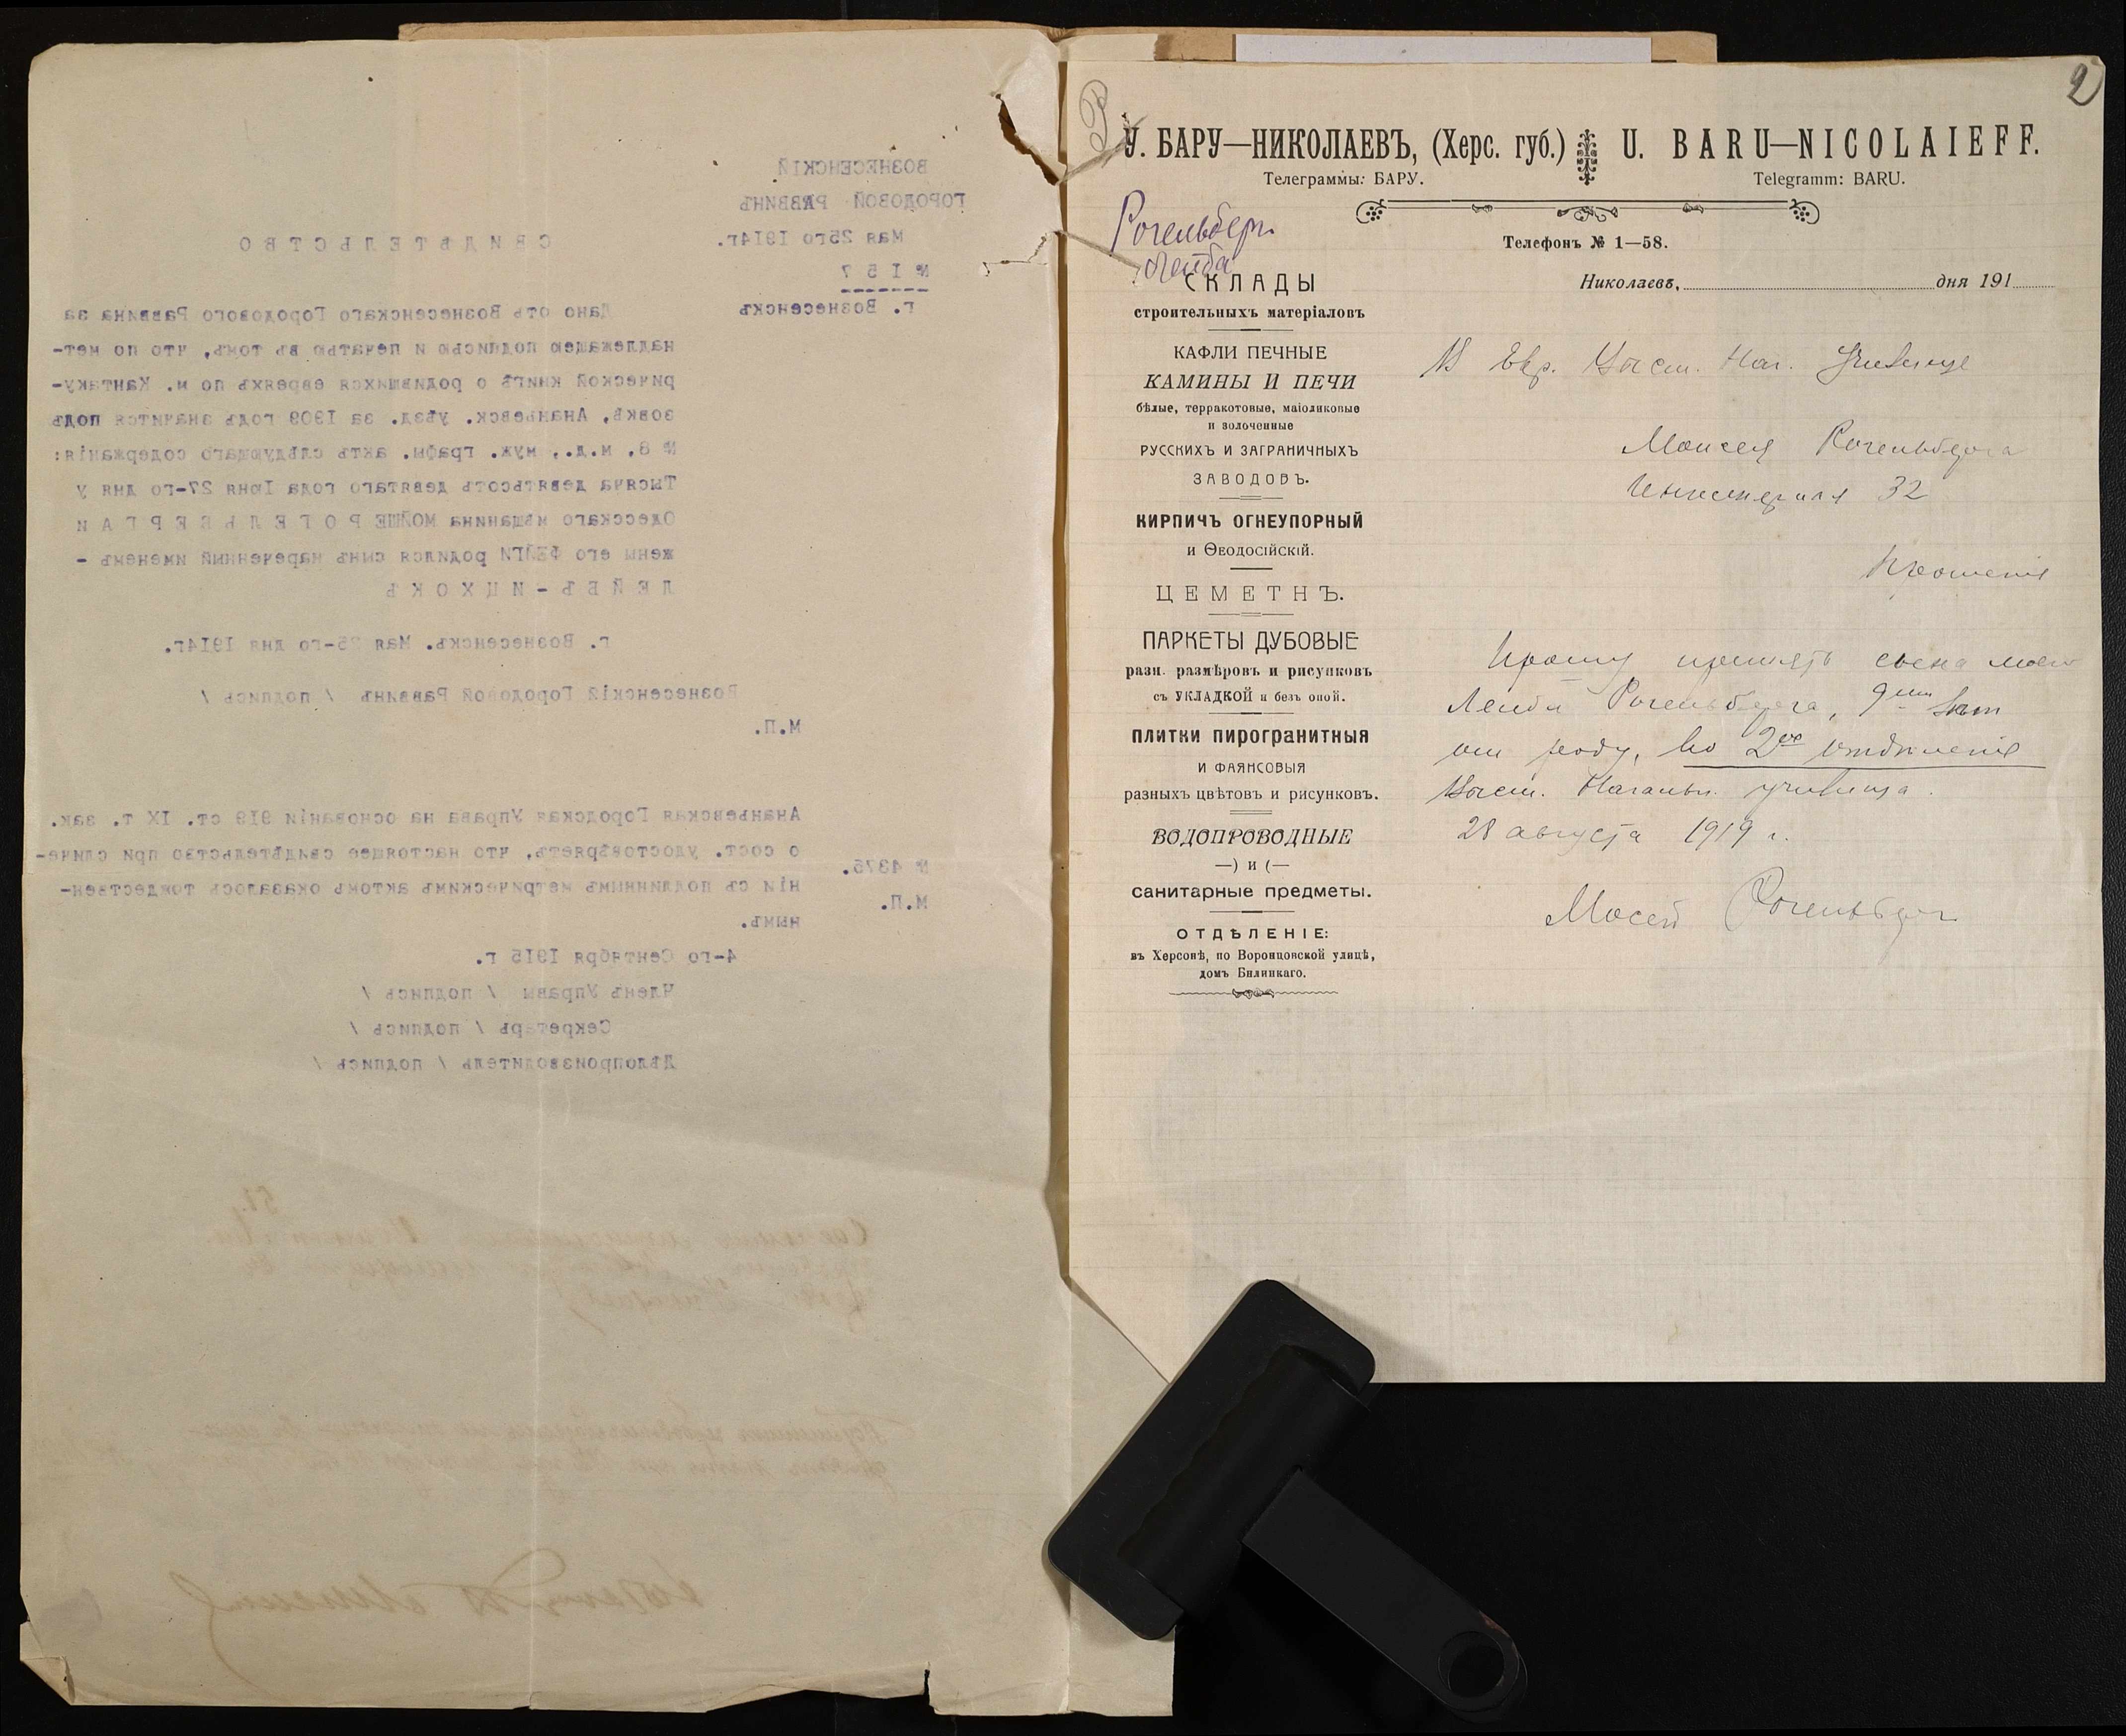 ВОЗНЕСЕНСКІЙ
ГОРОДОВОЙ РАВВИНЪ
Мая 25го 1914г.
№ 157
г. Вознесенскъ
СВИДѢТЕЛЬСТВО
Дано отъ Вознесенскаго Городового Раввина за
надлежащею подписью и печатью въ томъ, что по мет-
рической книгѣ о родившихся евреяхъ по м. Кантаку-
зовкѣ, Ананьевск. уѣзд. за 1909 годъ значится подъ
№ 8, м.д., муж. графы. актъ слѣдующаго содержанія:
Тысяча девятьсотъ девятаго года Іюня 27-го дня у
Одесскаго мѣщанина МОЙШЕ РОГЕЛЬБЕРГА и
жены его ФЕЙГИ родился сынъ нареченный именемъ -
ЛЕЙБЪ-ИЦХОКЪ
г. Вознесенскъ. Мая 25-го дня 1914г.
Вознесенскій Городовой Раввинъ / подпись /
М.П.
Ананьевская Городская Управа на основаніи 919 ст. IX т. зак.
о сост. удостовѣряетъ, что настоящее свидѣтельство при сличе-
№ 4375.
ніи съ подлиннымъ метрическимъ актомъ оказалось тождествен-
М.П.
нымъ.
4-го Сентября 1915 г.
Членъ Управы / подпись /
Секретарь / подпись /
Дѣлопроизводитель / подпись /
2
У. БАРУ—НИКОЛАЕВЪ, (Херс. губ.) U. BARU—NICOLAIEFF.
Телеграммы: БАРУ. Telegramm: BARU.
Рогельберг
Лейба
Телефонъ № 1—58.
Николаевъ, дня 191
СКЛАДЫ
строительныхъ матеріаловъ
КАФЛИ ПЕЧНЫЕ
КАМИНЫ И ПЕЧИ
бѣлые, терракотовые, маіоликовые
и золоченные
РУССКИХЪ И ЗАГРАНИЧНЫХЪ
ЗАВОДОВЪ.
КИРПИЧЪ ОГНЕУПОРНЫЙ
и Ѳеодосійскій.
ЦЕМЕТНЪ.
ПАРКЕТЫ ДУБОВЫЕ
разн. размѣровъ и рисунковъ
съ УКЛАДКОЙ и безъ оной.
ПЛИТКИ ПИРОГРАНИТНЫЯ
И ФАЯНСОВЫЯ
разныхъ цвѣтовъ и рисунковъ.
ВОДОПРОВОДНЫЕ
—) и (—
санитарные предметы.
ОТДѢЛЕНІЕ:
въ Херсонѣ, по Воронцовской улицѣ,
домъ Билинкаго.
В Евр. Высш. Нач. Училище
Моисея Рогельберга
Инженерная 32
Прошеніе
Прошу принять сына моего
Лейба Рогельберга, 9ти лѣт
от роду, во 2ое отдѣленіе
Высш. Начальн. училища.
28 августа 1919 г.
Мосей Рогельберг